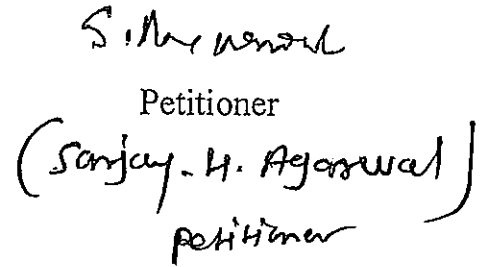 Petitioner
(Sanjay. H. Agarwal)
petitioner